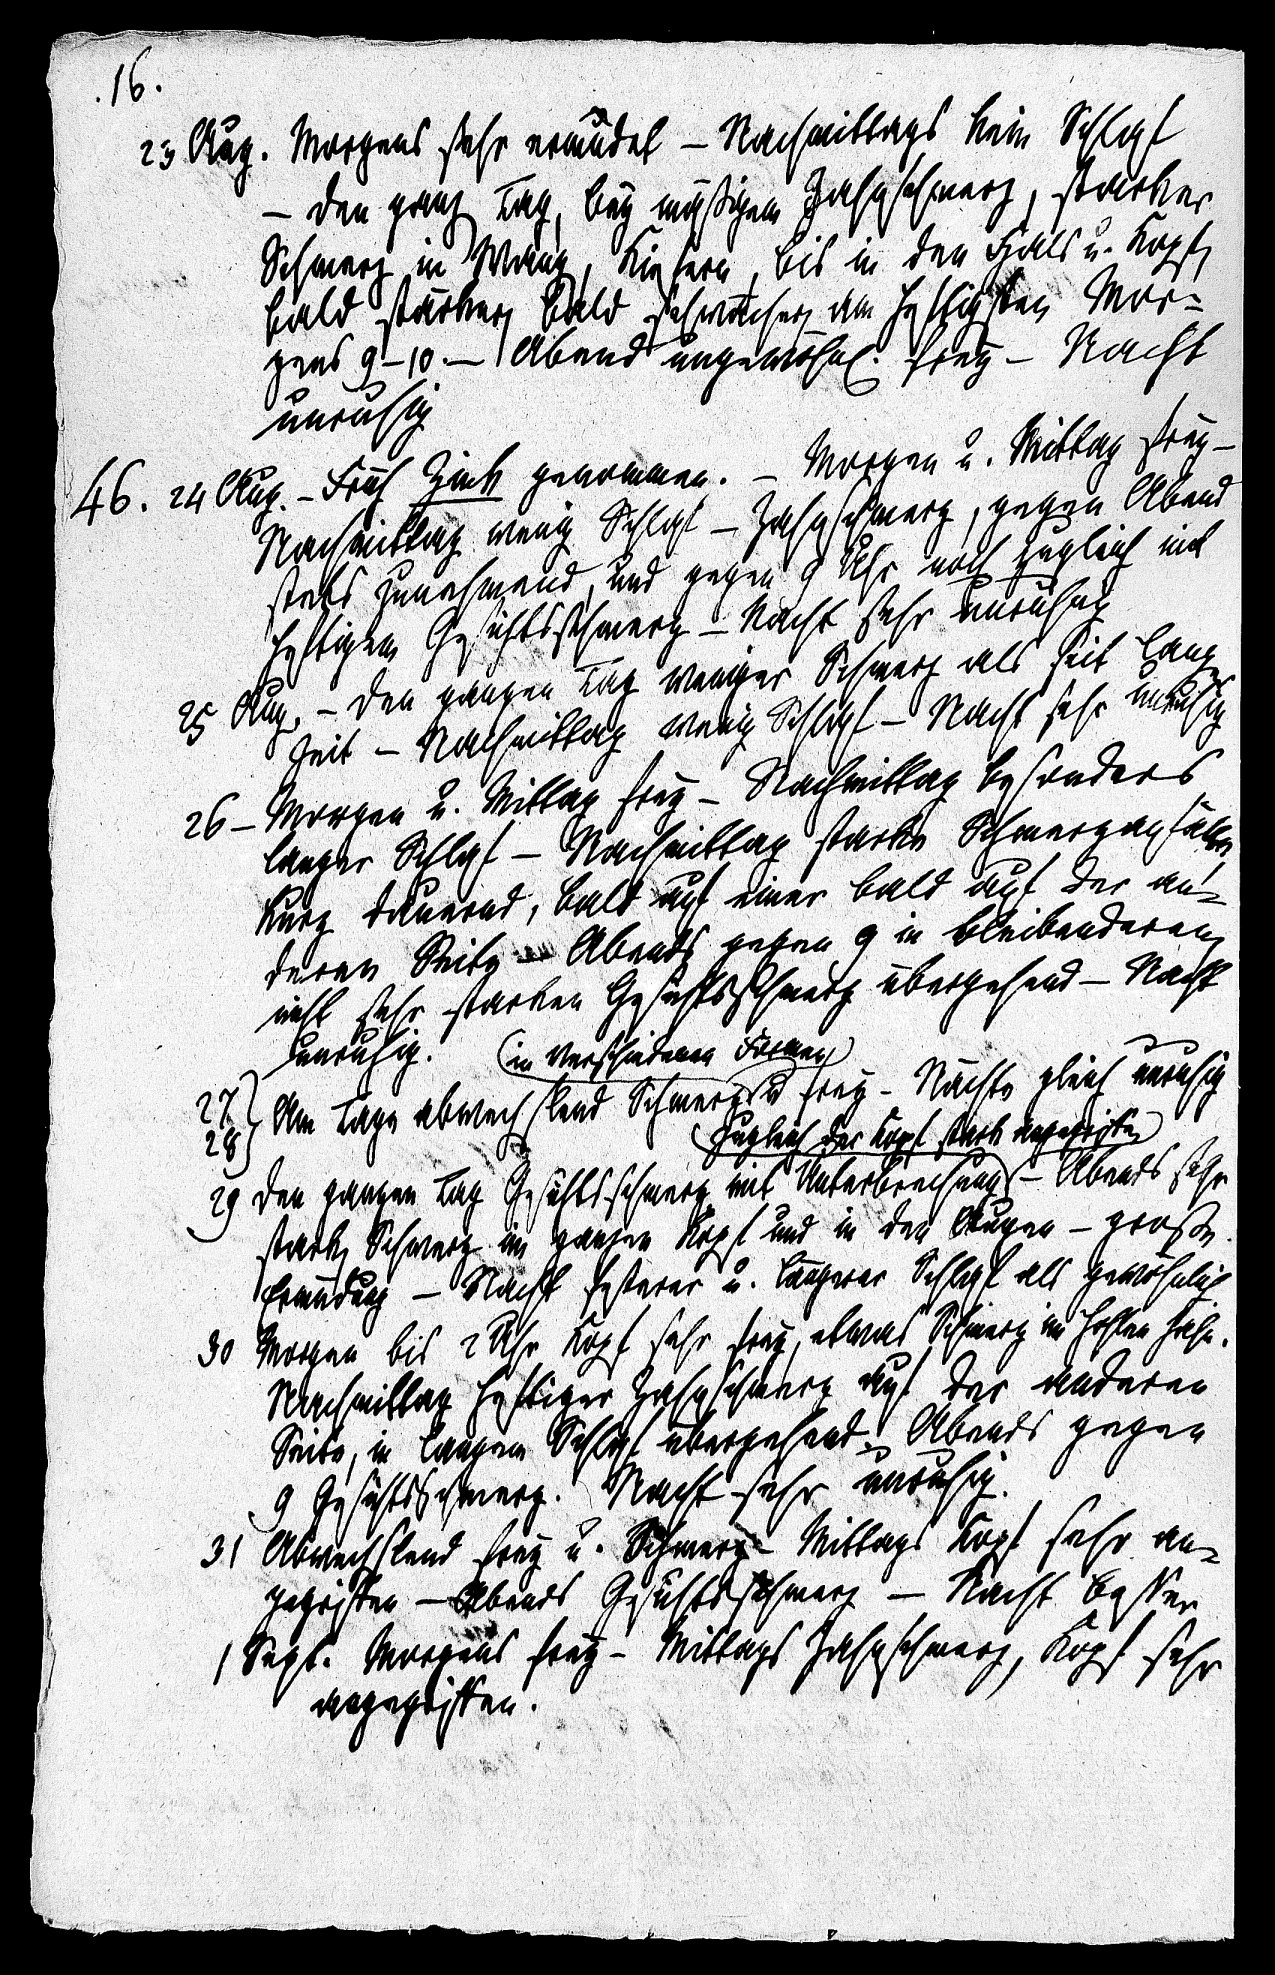 .16.
23 Aug. Morgens sehr ermüdet – Nachmittags kein Schlaf
– den ganz Tag, bey mäßigem Zahnschmerz, starker
Schmerz in Wang, Kiefern, bis in den Hals u. Kopf,
bald stärker, bald schwächer, am heftigsten Mor=
gens 9–10. – Abend ungewöhnl. frey – Nacht
unruhig
46. 24 Aug. – Früh Zink genommen. – Morgen u. Mittag frey –
Nachmittag wenig Schlaf – Zahnschmerz, gegen Abend
stets zunehmend, und gegen 9 Uhr noch zugleich mit
heftigem Gesichtsschmerz – Nacht sehr unruhig
25 Aug. – Den ganzen Tag weniger Schmerz als seit langer
Zeit – Nachmittag wenig Schlaf – Nacht sehr unruhig
26 – Morgen u. Mittag frey – Nachmittag besonders
langer Schlaf – Nachmittag starke Schmerzanfälle,
kurz dauernd, bald auf einer bald auf der an=
deren Seite – Abends gegen 9 in bleibenderen,
nicht sehr starken Gesichtsschmerz übergehend – Nacht
unruhig.
(in verschiedenen Formen)
27 } Am Tage abwechslend Schmerz u frey – Nächte gleich unruhig
28
(zugleich der Kopf stark angegriffen)
29 Den ganzen Tag Gesichtsschmerz mit Unterbrechung – Abends sehr
stark Schmerz im ganzen Kopf und in den Augen – große
Ermüdung – Nacht festerer u. längerer Schlaf als gewöhnlich
30 Morgen bis 2 Uhr Kopf sehr frey, etwas Schmerz im hohlen Zahn.
Nachmittag heftiger Zahnschmerz auf der anderen
Seite, in langem Schlaf übergehend. Abends gegen
9 Gesichtsschmerz. Nacht sehr unruhig.
31 Abwechslend frey u. Schmerz – Mittags Kopf sehr an=
gegriffen – Abends Gesichtsschmerz – Nacht besser
1 Sept. Morgens frey – Mittags Zahnschmerz, Kopf sehr
angegriffen.